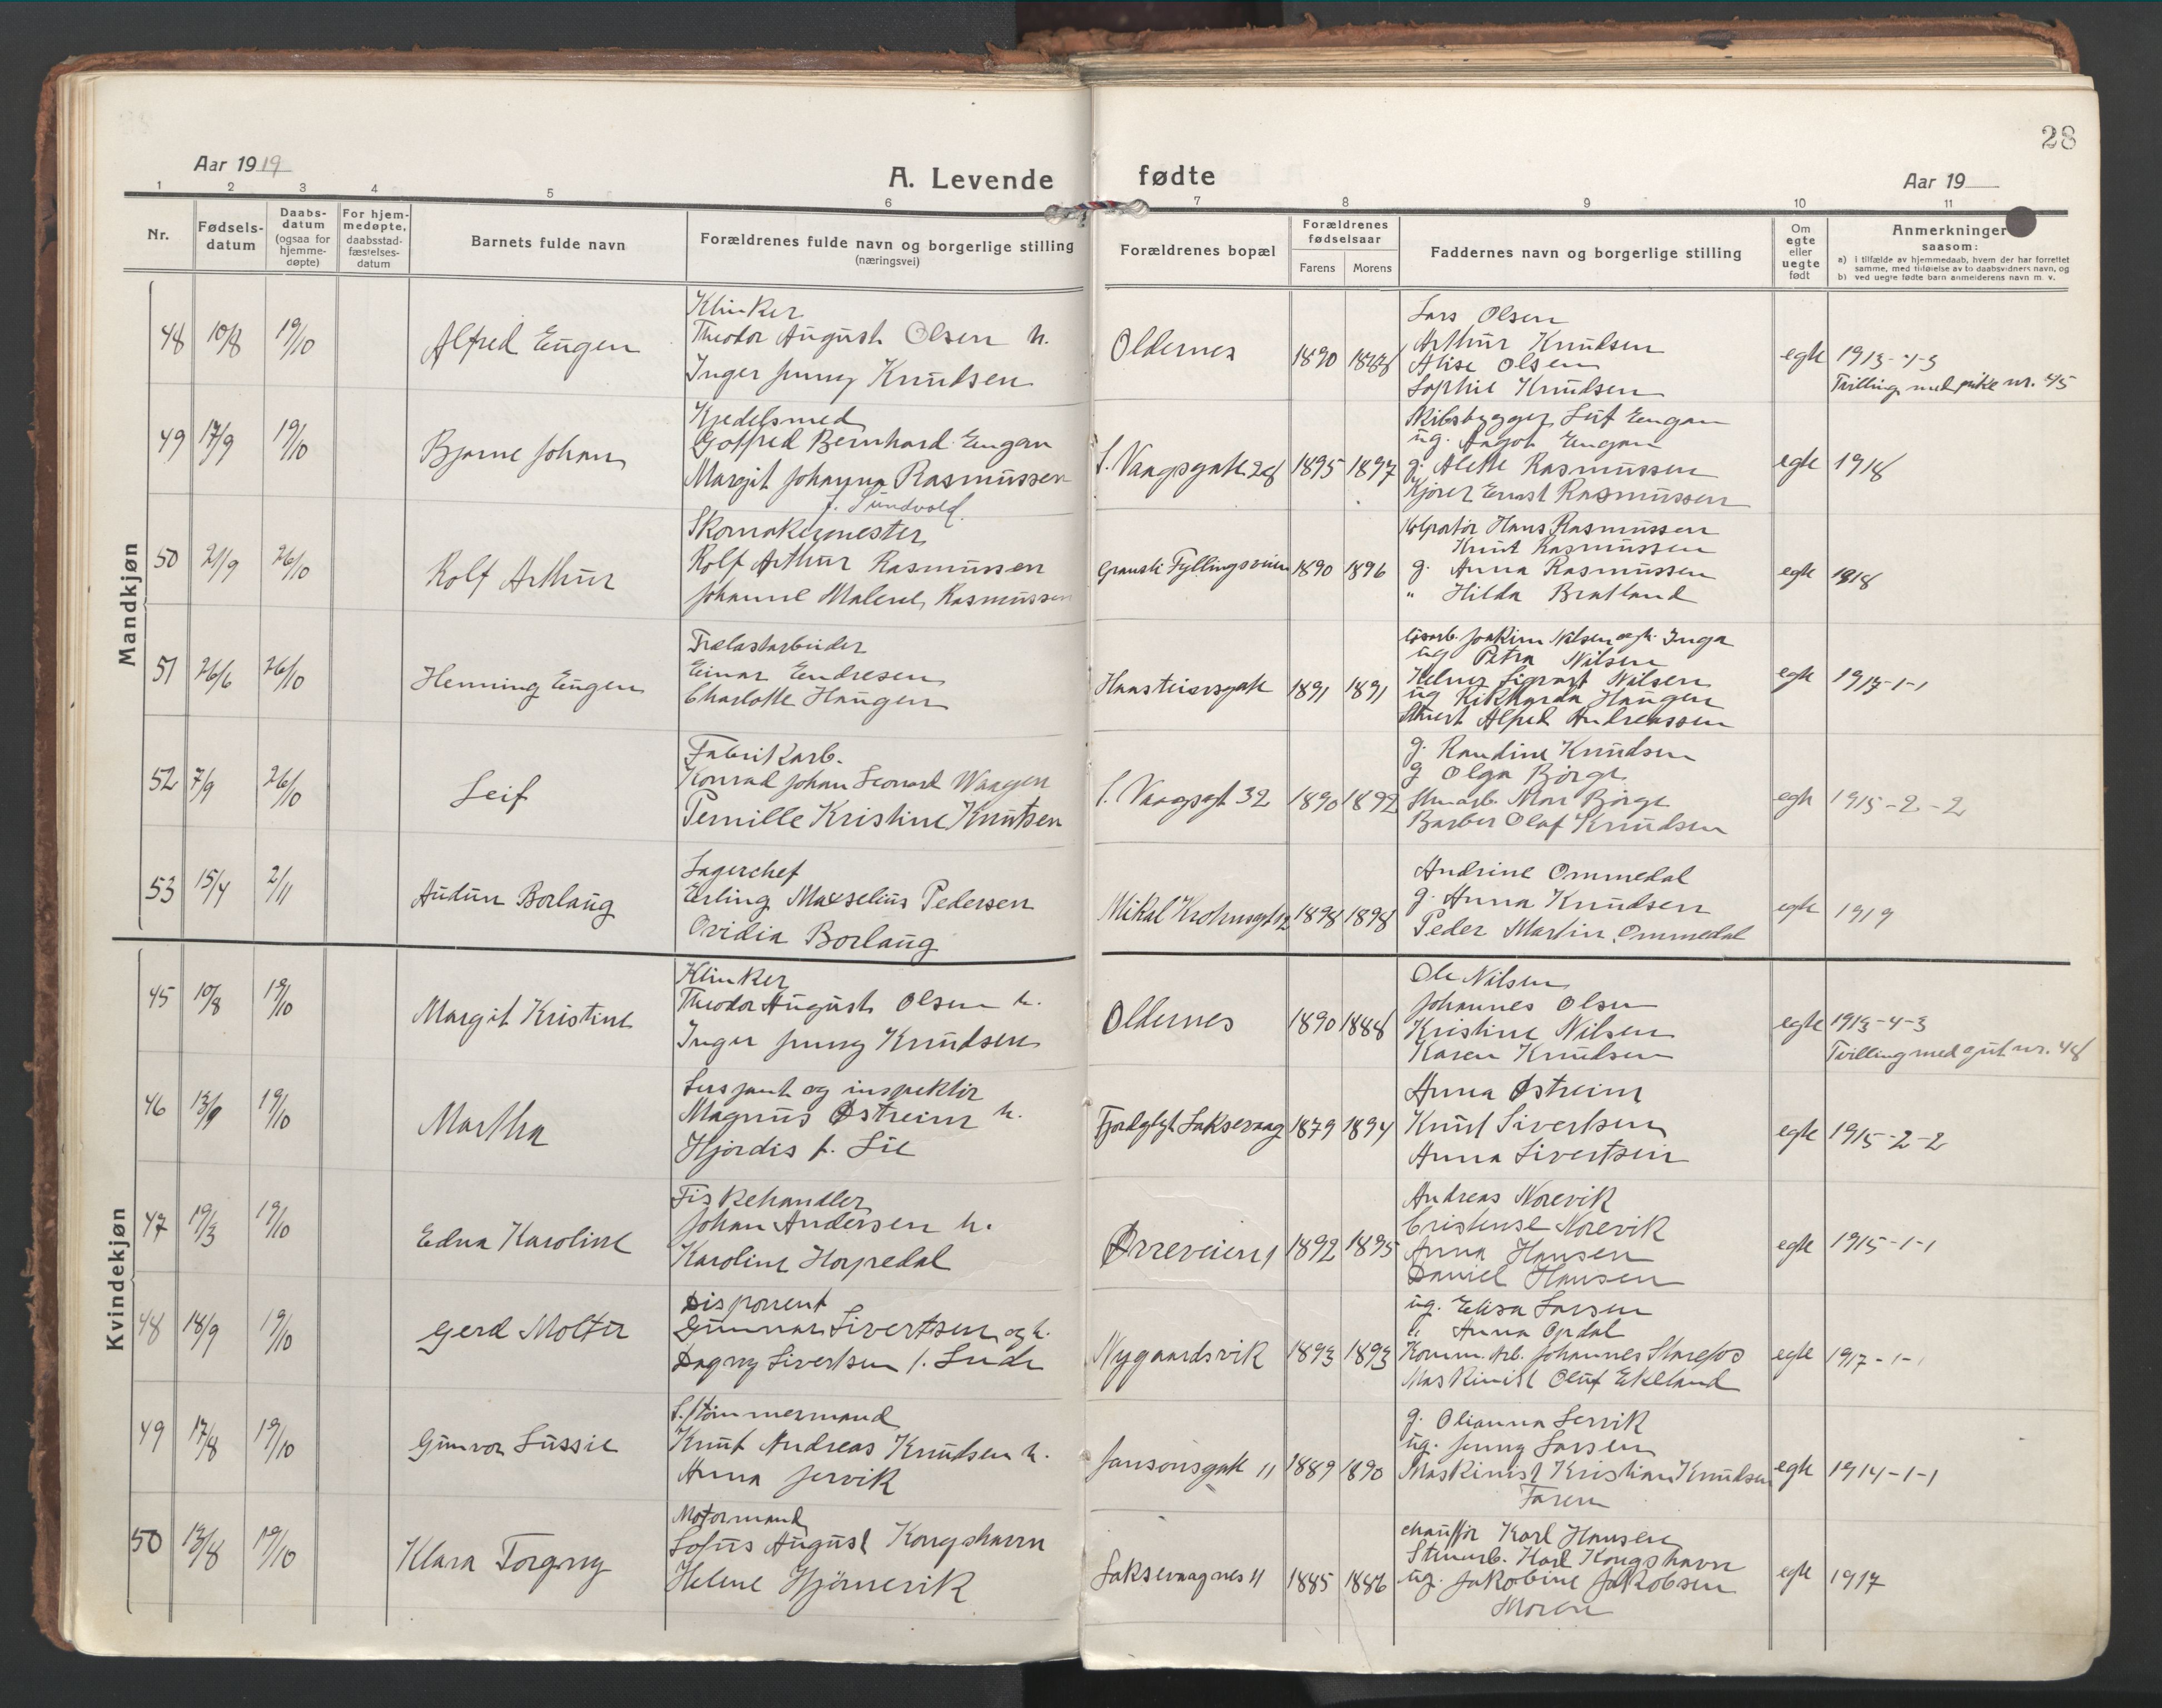 28
Aar 1919
A. Levende fødte
Aar 19
1 2 3 4 5 6 7 8 9 10 11
Nr.
Fødselsdatum
Daabsdatum (ogsaa for hjemmedøpte)
For hjemmedøpte, daabsstadfæstelsesdatum
Barnets fulde navn
Forældrenes fulde navn og borgerlige stilling
(næringsvei)
Forældrenes bopæl
Forældrenes fødselsaar
Farens Morens
Faddernes navn og borgerlige stilling
Om egte eller uegte født
Anmerkninger
saasom:
a) i tilfælde av hjemmedaab, hvem der har forrettet samme, med tilføielse av to daabsvidners navn, og
b) ved uegte fødte barn anmelderens navn m. v.
Mandkjøn
48 10/8 19/10 Alfred Eugen
Klinker
Theodor August Olsen h.
Inger Jenny Knudsen
Oldernes 1890 1888
Lars Olsen
Arthur Knudsen
Alise Olsen
Sophie Knudsen
egte 1913-4-3
Tvilling med pike nr. 45
49 17/9 19/10 Bjarne Johan
Kjedelsmed
Gotfred Bernhard Engan
Margit Johanna Rasmussen
f. Sundvold
S. Vaagsgate 28 1895 1897
Skibsbygger Leif Engan
ug. Aagot Engan
g. Alette Rasmussen
Kjører Ernst Rasmussen
egte 1918
50 21/9 26/10 Rolf Arthur
Skomakermester
Rolf Arthur Rasmussen
Johanne Malene Rasmussen
Fyllingsveien 1890 1896
Kolportør Hans Rasmussen
Knut Rasmussen
g. Anna Rasmussen
" Hilda Bratland
egte 1918
51 26/6 26/10 Henning Eugen
Trælastarbeider
Einar Endresen
Charlotte Haugen
Hansteensgate 1891 1891
Joakim Nilsen og h. Inga
ug Petra Nilsen
Nilsen
ug Rikharda Haugen
Alfred Andreassen
egte 1917-1-1
52 7/9 26/10 Leif
Fabrikarb.
Konrad Johan Leonard Waagen
Pernille Kristine Knutsen
S. Vaagsgt 32 1890 1892
g. Randine Knudsen
g Olga Bjørge
Bjørge
Barber Olaf Knudsen
egte 1915-2-2
53 15/4 2/11 Audun Borlaug
Lagerchef
Erling Maxselius Pedersen
Ovidia Borlaug
Mikal Krohnsgt 12 1898 1898
Andrine Ommedal
g. Anna Knudsen
Peder Martin Ommedal
egte 1919
Kvindekjøn
45 10/8 19/10 Margit Kristine
Klinker
Theodor August Olsen h.
Inger Jenny Knudsen
Oldernes 1890 1888
Ole Nilsen
Johannes Olsen
Kristine Nilsen
Karen Knudsen
egte 1913-4-3
Tvilling med gut nr. 48
46 13/9 19/10 Martha
Sersjant og inspektør
Magnus Østreim h.
Hjørdis f. Lie
Laksevaag 1879 1894
Anna Østreim
Knut Sivertsen
Anna Sivertsen
egte 1915-2-2
47 19/3 19/10 Edna Karoline
Fiskehandler
Johan Andersen h.
Karoline Hopedal
Ørreveien 1 1892 1895
Andreas Norevik
Cristense Norevik
Anna Hansen
Daniel Hansen
egte 1915-1-1
48 18/9 19/10 Gerd Molter
Disponent
Gunnar Sivertsen og h.
Dagny Sivertsen f. Lude
Nygaardsvik 1893 1893
ug. Elisa Larsen
" Anna Opdal
Komm. Arb. Johannes Storefos
Maskinist Oluf Ekeland
egte 1917-1-1
49 17/8 19/10 Gunvor Lussie
S./tømmermand
Knut Andreas Knudsen h.
Anna Servik
Jansonsgate 11 1889 1890
g. Olianna Servik
ug. Jenny Larsen
Maskinist Kristian Knudsen
Faren
egte 1914-1-1
50 13/8 19/10 Klara Torgny
Motormand
Sofus August Kongshavn
Helene Hjørnevik
Laksevaagnes 11 1885 1886
chauffør Karl Hansen
Stenarb. Karl Kongshavn
ug. Jakobine Jakobsen
Moren
egte 1917